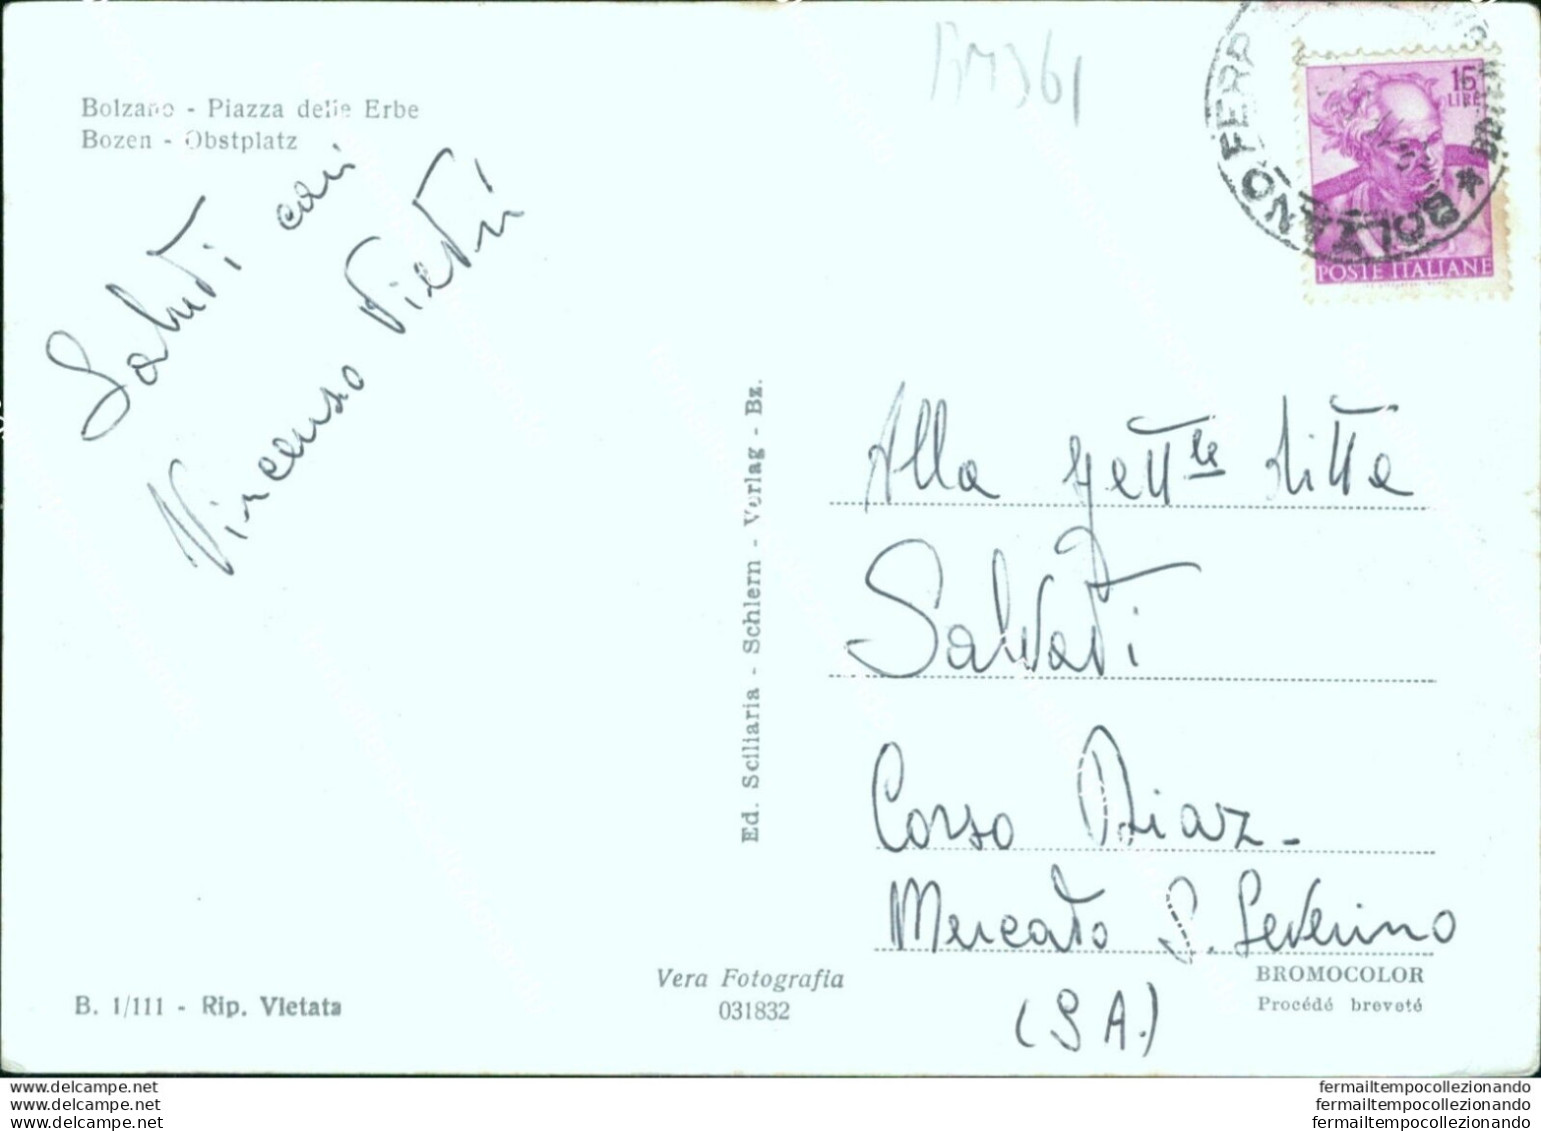 Bolzano - Piazza delle Erbe
Bozen - Obstplatz
Saluti cari
Vincenzo Pietri
BM361
BOLZANO FERR
15
LIRE
POSTE ITALIANE
Ed. Sciliaria - Schlern - Verlag - Bz.
Alla gett.le ditta
Salvati
Corso Diaz -
Mercato S. Severino
(SA.)
B. 1/111 - Rip. Vietata
Vera Fotografia
031832
BROMOCOLOR
Procédé breveté
www.delcampe.net
www.delcampe.net
www.delcampe.net
fermailtempocollezionando
fermailtempocollezionando
fermailtempocollezionando